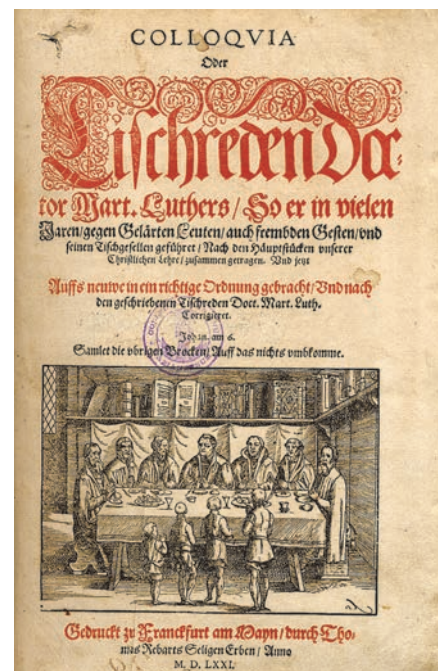 COLLOQVIA
Oder
Tischreden Doc-
tor Mart. Luthers / So er in vielen
Jaren / gegen Gelärten Leuten / auch frembden Gesten / vnd
seinen Tischgesellen geführet / Nach den Häuptstücken vnserer
Christlichen Lehre / zusammen getragen. Vnd jetzt
Auffs neuwe in ein richtige Ordnung gebracht / Vnd nach
den geschriebenen Tischreden Doct. Mart. Luth.
Corrigieret.
Johan. am 6.
Samlet die vbrigen Brocken / Auff das nichts vmbkomme.
Gedruckt zu Franckfurt am Mayn / durch Tho-
mas Rebarts Seligen Erben / Anno
M. D. LXXI.